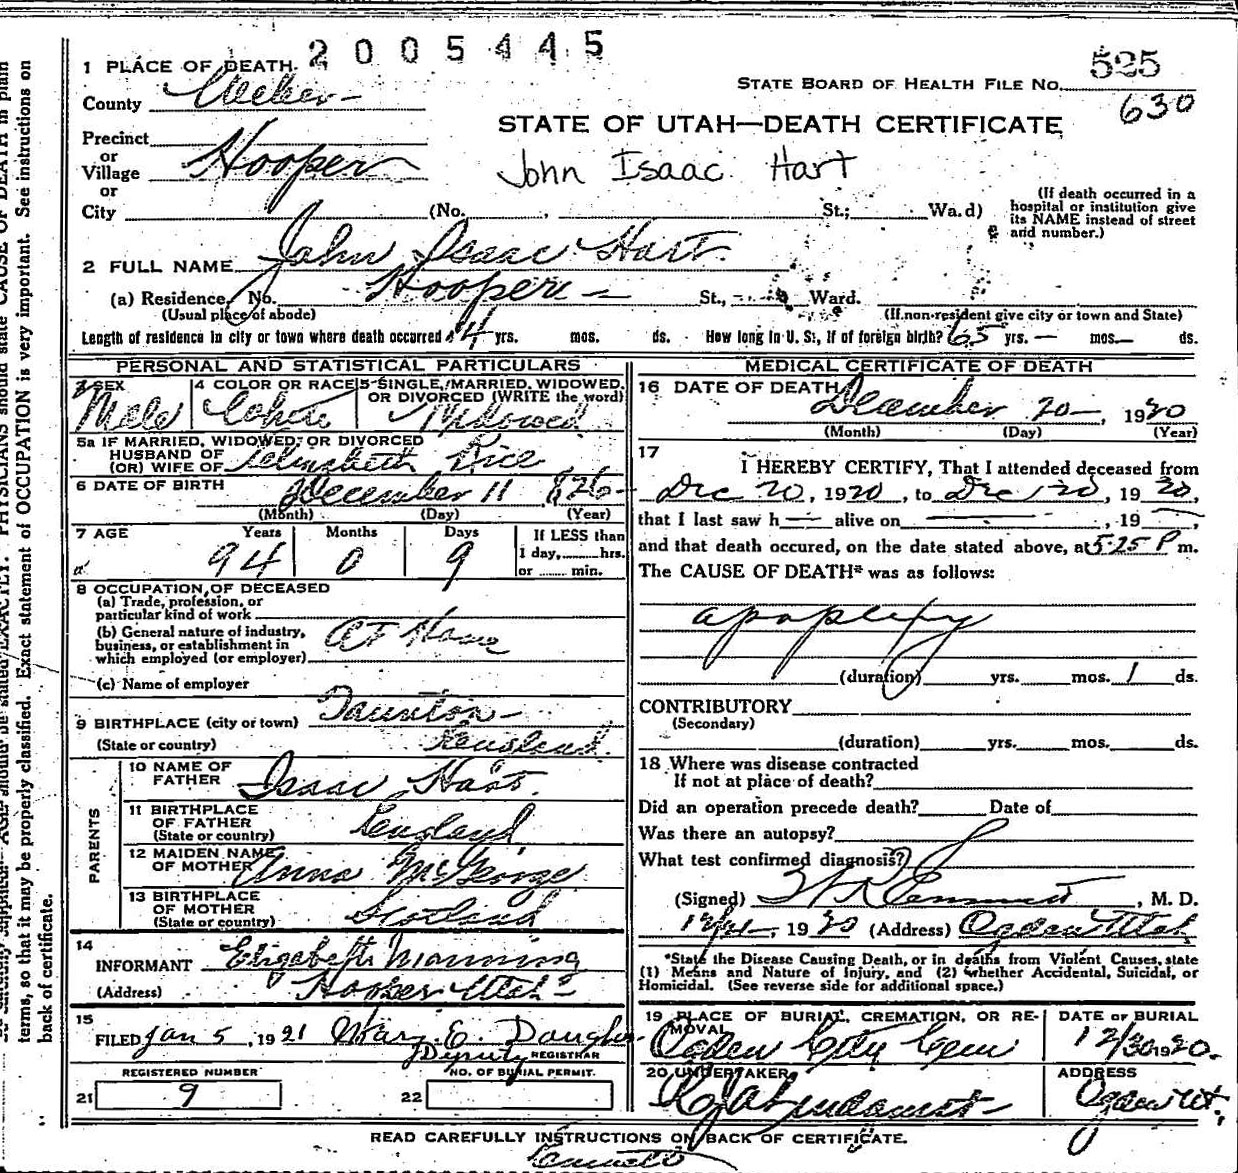 2005445
1 PLACE OF DEATH.
STATE BOARD OF HEALTH FILE NO. 525
630
County Weber
STATE OF UTAH—DEATH CERTIFICATE
Precinct
or
Village Hooper
or
John Isaac Hart
City (No. , St.; Wa.d)
(If death occurred in a
hospital or institution give
its NAME instead of street
and number.)
2 FULL NAME John Isaac Hart.
(a) Residence, No. Hooper — St., Ward.
(Usual place of abode) (If non-resident give city or town and State)
Length of residence in city or town where death occurred 44 yrs. mos. ds. How long in U. S., if of foreign birth? 65 yrs. — mos. — ds.
PERSONAL AND STATISTICAL PARTICULARS
3 SEX Male
4 COLOR OR RACE White
5 SINGLE, MARRIED, WIDOWED,
OR DIVORCED (WRITE the word)
Widowed
5a IF MARRIED, WIDOWED, OR DIVORCED
HUSBAND OF
(OR) WIFE OF Elizabeth Rice
6 DATE OF BIRTH December 11 1826
(Month) (Day) (Year)
7 AGE Years Months Days If LESS than
94 0 9 1 day, hrs.
or min.
8 OCCUPATION OF DECEASED
(a) Trade, profession, or
particular kind of work
(b) General nature of industry,
business, or establishment in
which employed (or employer) At Home
(c) Name of employer
9 BIRTHPLACE (city or town) Taunton—
(State or country) England.
PARENTS
10 NAME OF
FATHER Isaac Hart.
11 BIRTHPLACE
OF FATHER
(State or country) England
12 MAIDEN NAME
OF MOTHER Anna McGeorge
13 BIRTHPLACE
OF MOTHER
(State or country) Scotland
14
INFORMANT Elizabeth Manning
(Address) Hooper Utah
15
FILED Jan 5, 1921 Mary E. Daugh
Deputy REGISTRAR
REGISTERED NUMBER NO. OF BURIAL PERMIT.
21 9 22
MEDICAL CERTIFICATE OF DEATH
16 DATE OF DEATH December 20—, 1920
(Month) (Day) (Year)
17
I HEREBY CERTIFY, That I attended deceased from
Dec 20, 1920, to Dec 20, 1920,
that I last saw h— alive on — , 19 —,
and that death occured, on the date stated above, at 5:25 P m.
The CAUSE OF DEATH* was as follows:
apoplexy
(duration) yrs. mos. 1 ds.
CONTRIBUTORY
(Secondary)
(duration) yrs. mos. ds.
18 Where was disease contracted
If not at place of death?
Did an operation precede death? Date of
Was there an autopsy?
What test confirmed diagnosis?
(Signed) , M. D.
12/21, 1920 (Address) Ogden Utah
*State the Disease Causing Death, or in deaths from Violent Causes, state
(1) Means and Nature of Injury, and (2) whether Accidental, Suicidal, or
Homicidal. (See reverse side for additional space.)
19 PLACE OF BURIAL, CREMATION, OR RE-
MOVAL
Ogden City Cem
DATE OF BURIAL
12/30 1920.
20 UNDERTAKER
ADDRESS
Ogden Ut.
READ CAREFULLY INSTRUCTIONS ON BACK OF CERTIFICATE.
terms, so that it may be properly classified. Exact statement of OCCUPATION is very important. See instructions on
back of certificate.